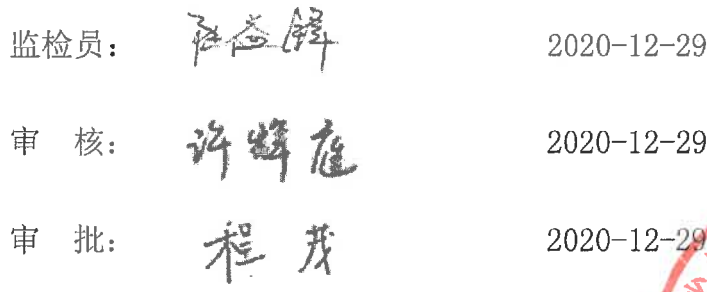 监检员: 2020-12-29
审 核: 许辉庭 2020-12-29
审 批: 程茂 2020-12-29